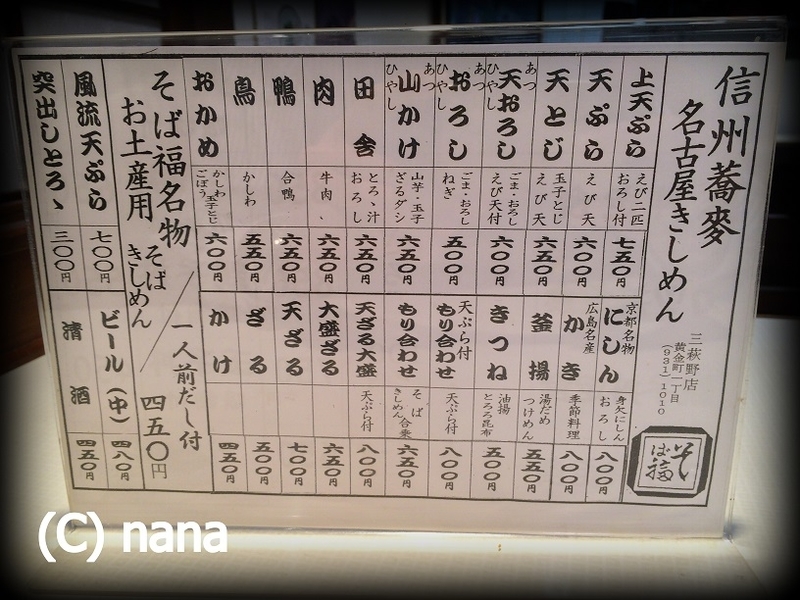 信州蕎麥
名古屋きしめん
三萩野店
黄金町一丁目
(931) 1010
そば福
上天ぷら えび二匹 おろし付 七五〇円
天ぷら えび天 六〇〇円
天とじ 玉子とじ えび天 六五〇円
あつ ひやし 天おろし ごま・おろし えび天付 六〇〇円
あつ ひやし おろし ごま・おろし ねぎ 五〇〇円
あつ ひやし 山かけ 山芋・玉子 ざるダシ 六五〇円
田舎 とろゝ汁 おろし 六五〇円
肉 牛肉、 六五〇円
鴨 合鴨 六五〇円
鳥 かしわ 五五〇円
おかめ かしわ 玉子とじ ごぼう 六〇〇円
京都名物 にしん 身欠にしん おろし 八〇〇円
広島名産 かき 季節料理 八〇〇円
釜揚 湯だめ つけめん 五五〇円
きつね 油揚 とろろ昆布 五五〇円
天ぷら付 もり合わせ 天ぷら付 八〇〇円
もり合わせ そば きしめん 合乗 六五〇円
天ざる大盛 天ぷら付 八〇〇円
大盛ざる 六五〇円
天ざる 七〇〇円
ざる 五〇〇円
かけ 四五〇円
そば福名物
お土産用 そば きしめん 一人前だし付 四五〇円
風流天ぷら 七〇〇円
突出しとろゝ 三〇〇円
ビール(中) 四八〇円
清酒 四五〇円
(C) nana